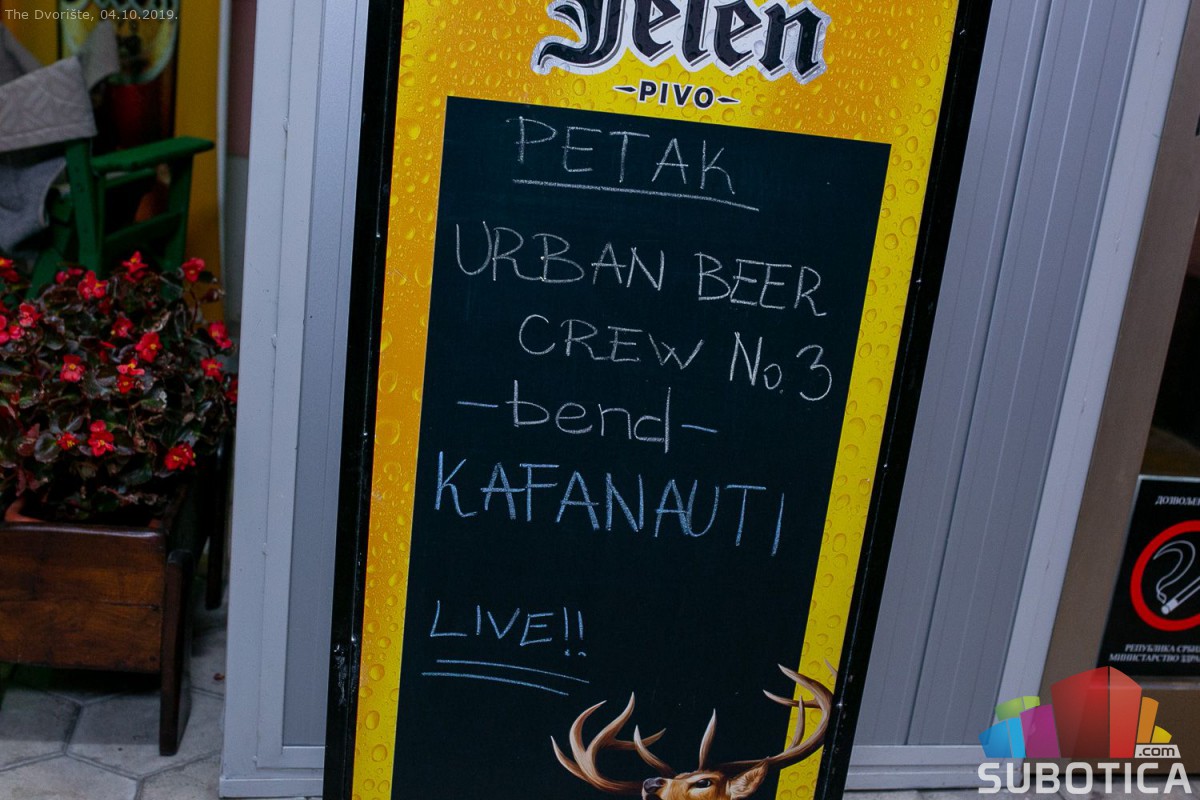 The Dvorište, 04.10.2019.
Jelen
PIVO
PETAK
URBAN BEER
CREW No. 3
-bend-
KAFANAUTI
LIVE!!
РЕПУБЛИКА
МИНИСТАРСТВО
.com
SUBOTICA